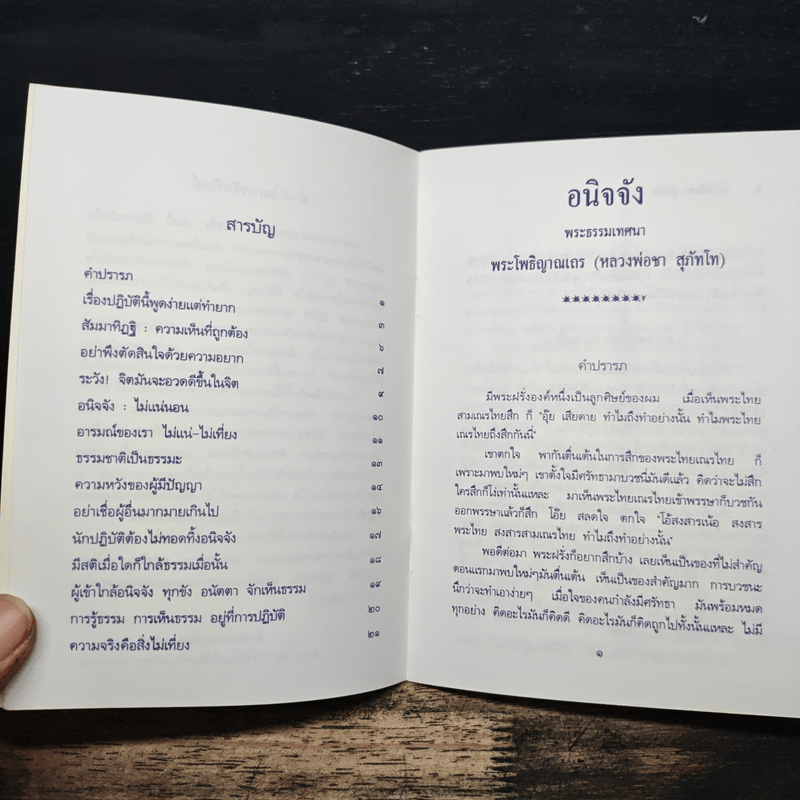 สารบัญ
คำปรารภ ๑
เรื่องปฏิบัตินี้พูดง่ายแต่ทำยาก ๓
สัมมาทิฏฐิ : ความเห็นที่ถูกต้อง ๖
อย่าพึงตัดสินใจด้วยความอยาก ๗
ระวัง! จิตมันจะอวดดีขึ้นในจิต ๙
อนิจจัง : ไม่แน่นอน ๑๐
อารมณ์ของเรา ไม่แน่-ไม่เที่ยง ๑๑
ธรรมชาติเป็นธรรมะ ๑๓
ความหวังของผู้มีปัญญา ๑๔
อย่าเชื่อผู้อื่นมากมายเกินไป ๑๖
นักปฏิบัติต้องไม่ทอดทิ้งอนิจจัง ๑๗
มีสติเมื่อใดก็ใกล้ธรรมเมื่อนั้น ๑๘
ผู้เข้าใกล้อนิจจัง ทุกขัง อนัตตา จักเห็นธรรม ๑๙
การรู้ธรรม การเห็นธรรม อยู่ที่การปฏิบัติ ๒๐
ความจริงคือสิ่งไม่เที่ยง ๒๑
อนิจจัง
พระธรรมเทศนา
พระโพธิญาณเถร (หลวงพ่อชา สุภัทโท)
คำปรารภ
มีพระฝรั่งองค์หนึ่งเป็นลูกศิษย์ของผม เมื่อเห็นพระไทย
สามเณรไทยสึก ก็ "อุ๊ย เสียดาย ทำไมถึงทำอย่างนั้น ทำไมพระไทย
เณรไทยถึงสึกกันนี่"
เขาตกใจ พากันตื่นเต้นในการสึกของพระไทยเณรไทย ก็
เพราะมาพบใหม่ๆ เขาตั้งใจมีศรัทธามาบวชนี่มันดีแล้ว คิดว่าจะไม่สึก
ใครสึกก็โง่เท่านั้นแหละ มาเห็นพระไทยเณรไทยเข้าพรรษาก็บวชกัน
ออกพรรษาแล้วก็สึก โอ๊ย สลดใจ ตกใจ "โอ้สงสารเน้อ สงสาร
พระไทย สงสารสามเณรไทย ทำไมถึงทำอย่างนั้น"
พอดีต่อมา พระฝรั่งก็อยากสึกบ้าง เลยเห็นเป็นของที่ไม่สำคัญ
ตอนแรกมาพบใหม่ๆมันตื่นเต้น เห็นเป็นของสำคัญมาก การบวชนะ
นึกว่าจะทำเอาง่ายๆ เมื่อใจของคนกำลังมีศรัทธา มันพร้อมหมด
ทุกอย่าง คิดอะไรมันก็คิดดี คิดอะไรมันก็คิดถูกไปทั้งนั้นแหละ ไม่มี
๑